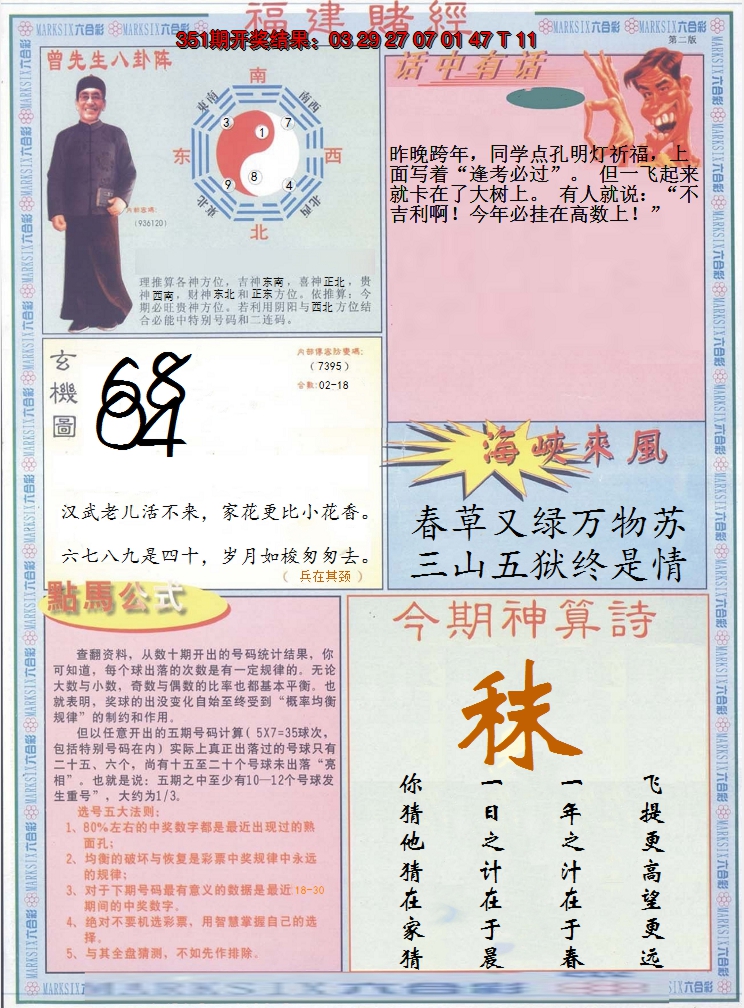 福建賭經
MARKSIX六合彩 MARKSIX六合彩 MARKSIX六合彩 MARKSIX六合彩
351期开奖结果：03 29 27 07 01 47 T 11
第二版
曾先生八卦阵
南
东南 西南
3 1 7
东 西
9 8 4
东北 西北
北
内部密码:
(936120)
理推算各神方位，吉神东南，喜神正北，贵
神西南，财神东北和正东方位。依推算：今
期必旺贵神方位。若利用阴阳与西北方位结
合必能中特别号码和二连码。
话中有话
昨晚跨年，同学点孔明灯祈福，上
面写着“逢考必过”。 但一飞起来
就卡在了大树上。 有人就说：“不
吉利啊！今年必挂在高数上！”
玄機圖
68
04
（7395）
合数:02-18
汉武老儿活不来，家花更比小花香。
六七八九是四十，岁月如梭匆匆去。
（ 兵在其颈 ）
海峽來風
春草又绿万物苏
三山五狱终是情
點馬公式
查翻资料，从数十期开出的号码统计结果，你
可知道，每个球出落的次数是有一定规律的。无论
大数与小数，奇数与偶数的比率也都基本平衡。也
就表明，奖球的出没变化自始至终受到“概率均衡
规律”的制约和作用。
但以任意开出的五期号码计算( 5X7=35球次，
包括特别号码在内) 实际上真正出落过的号球只有
二十五、六个，尚有十五至二十个号球未出落“亮
相”。也就是说：五期之中至少有10—12个号球发
生重号”，大约为1/3。
选号五大法则：
1、80%左右的中奖数字都是最近出现过的熟
面孔；
2、均衡的破坏与恢复是彩票中奖规律中永远
的规律；
3、对于下期号码最有意义的数据是最近18-30
期间的中奖数字。
4、绝对不要机选彩票，用智慧掌握自己的选
择。
5、与其全盘猜测，不如先作排除。
今期神算詩
秣
飞提更高望更远
一年之汁在于春
一日之计在于晨
你猜他猜在家猜